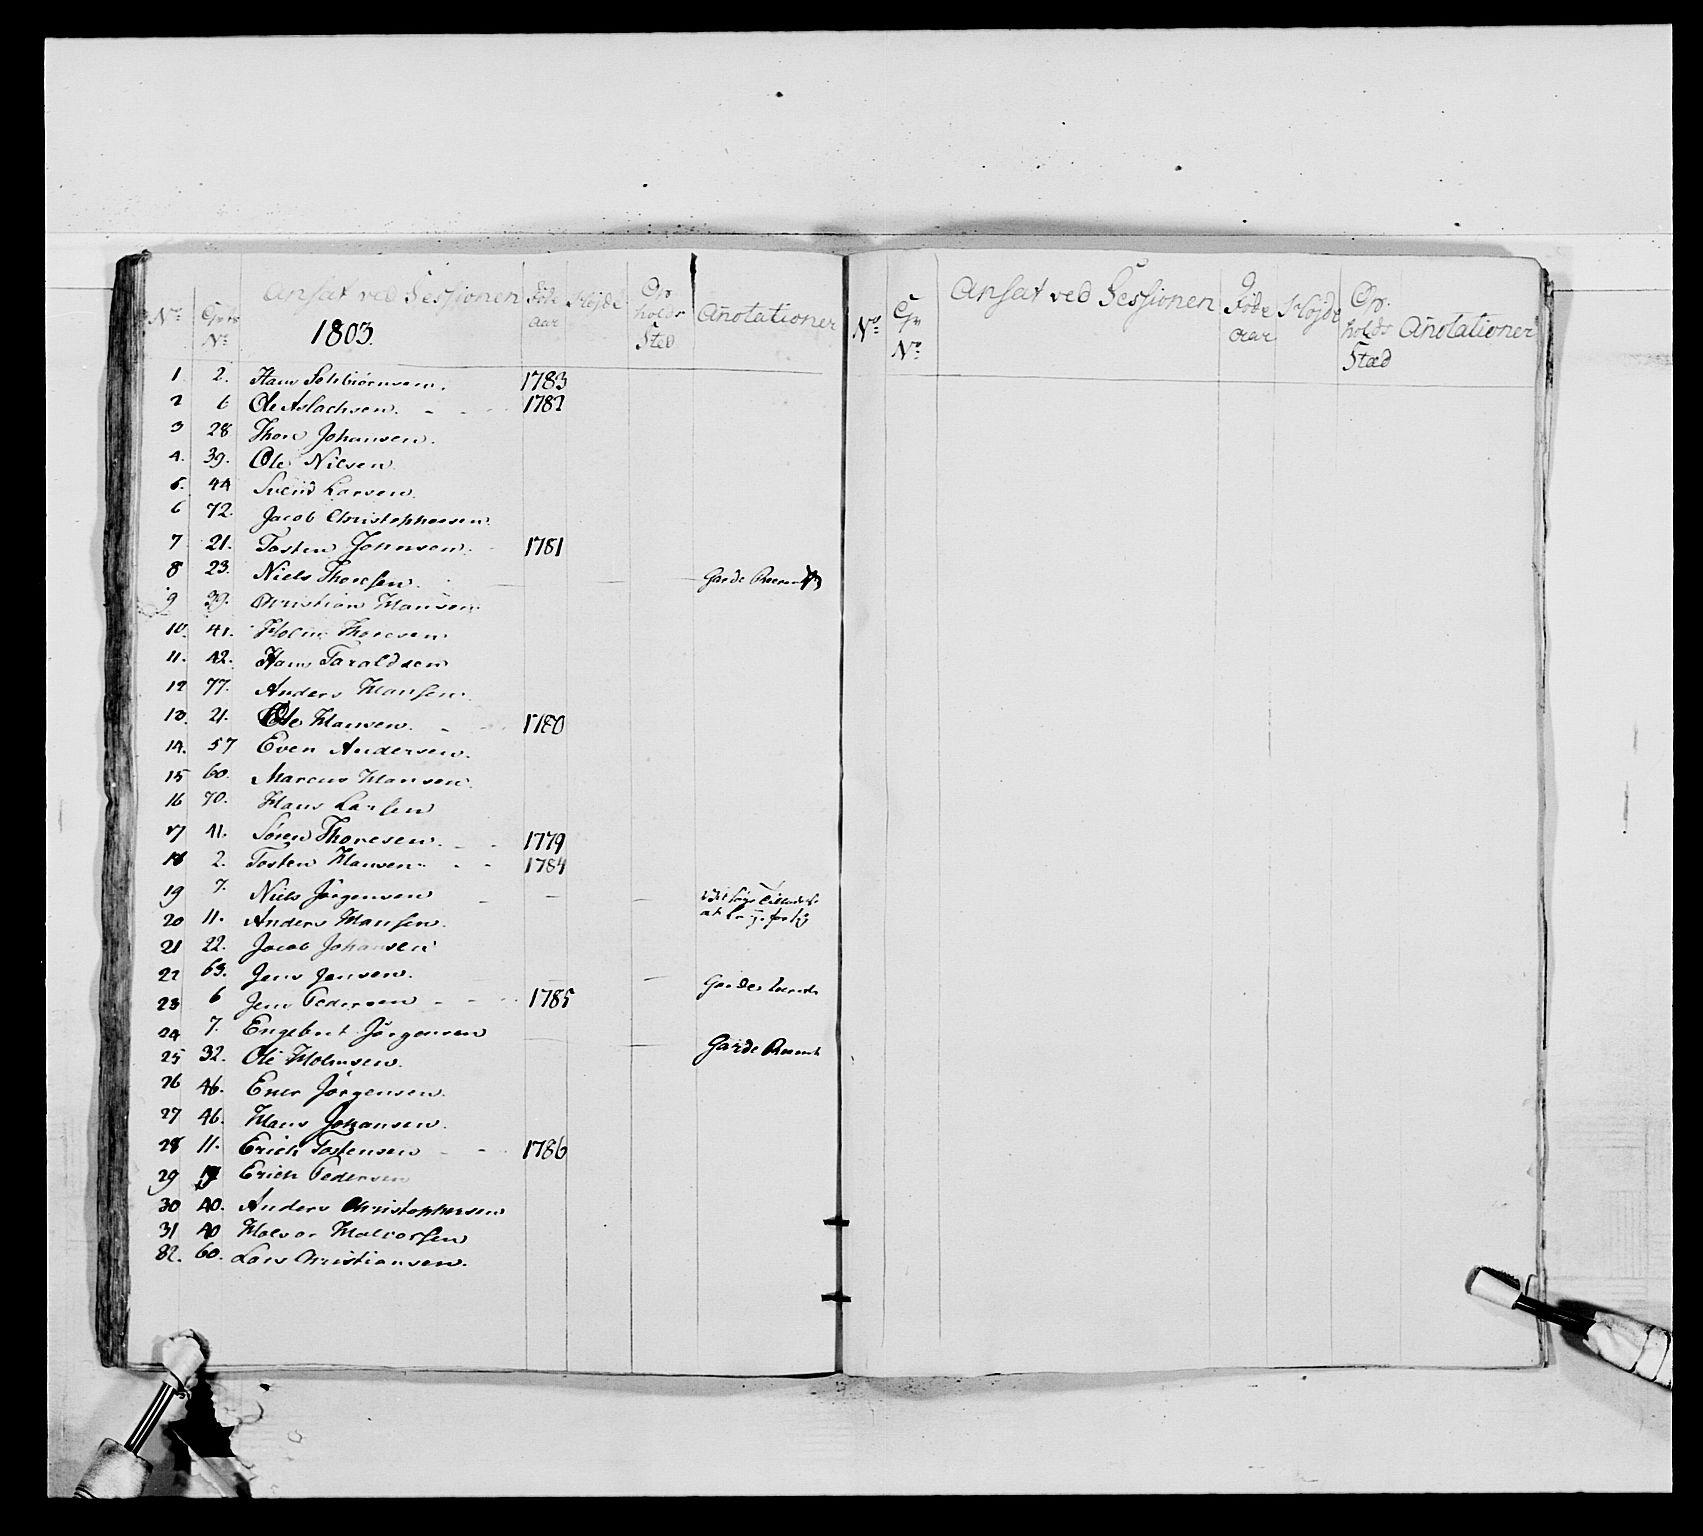 No. Ansat ved Sessionen Föde Aar Højde Op-holds Sted Anotationer
No.
1803.
1 2. Hans Solbiörnsen. 1783
2 6 Ole Aslachsen. 1782
3 28 Thore Johansen.
4. 39. Ole Nilsen.
5. 44 Svend Larsen.
6 72. Jacob Christophersen.
7 21. Tosten Johnsen. 1781
8 23. Niels Thoresen. Garde
9 39. Christian Hansen.
10. 41. Holm Thoresen
11. 42. Hans Taraldsen
12 77. Anders Hansen.
13. 21. Ole Hansen. 1780
14. 57 Even Andersen.
15 60. Marcus Hansen.
16 70. Hans Larsen
17 41. Sören Thoresen. 1779
18 2. Tosten Hansen. 1784
19 7. Niels Jörgensen
20 11. Anders Hansen.
21 22. Jacob Johansen
22 63. Jens Jensen.
23 6 Jens Pedersen 1785
24 7. Engebret Jörgensen
25 32. Ole Holmsen. Garde
26 46. Ener Jörgensen.
27 46. Hans Johansen.
28 11. Erich Tostensen 1786
29 Erich Pedersen
30 40. Anders Christophersen
31 40 Halvor Halvorsen
32. 60. Lars Christiansen.
No. Gr No. Ansat ved Sessionen Föde Aar Højde Op-holds Stæd Anotationer